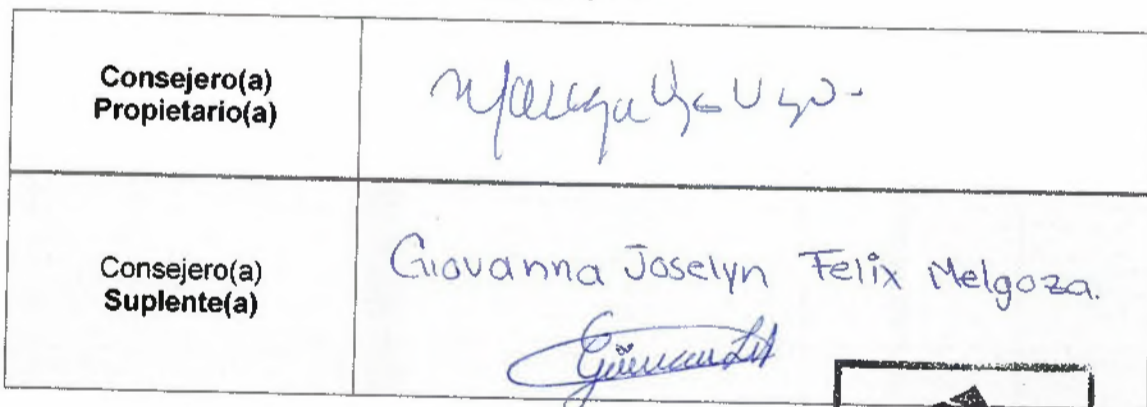 Consejero(a)
Propietario(a)
Consejero(a)
Suplente(a)
Giovanna Joselyn Felix Melgoza.